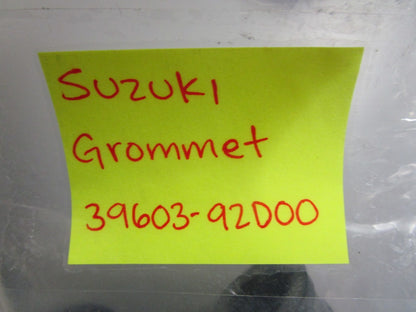 Suzuki
Grommet
39603-92D00